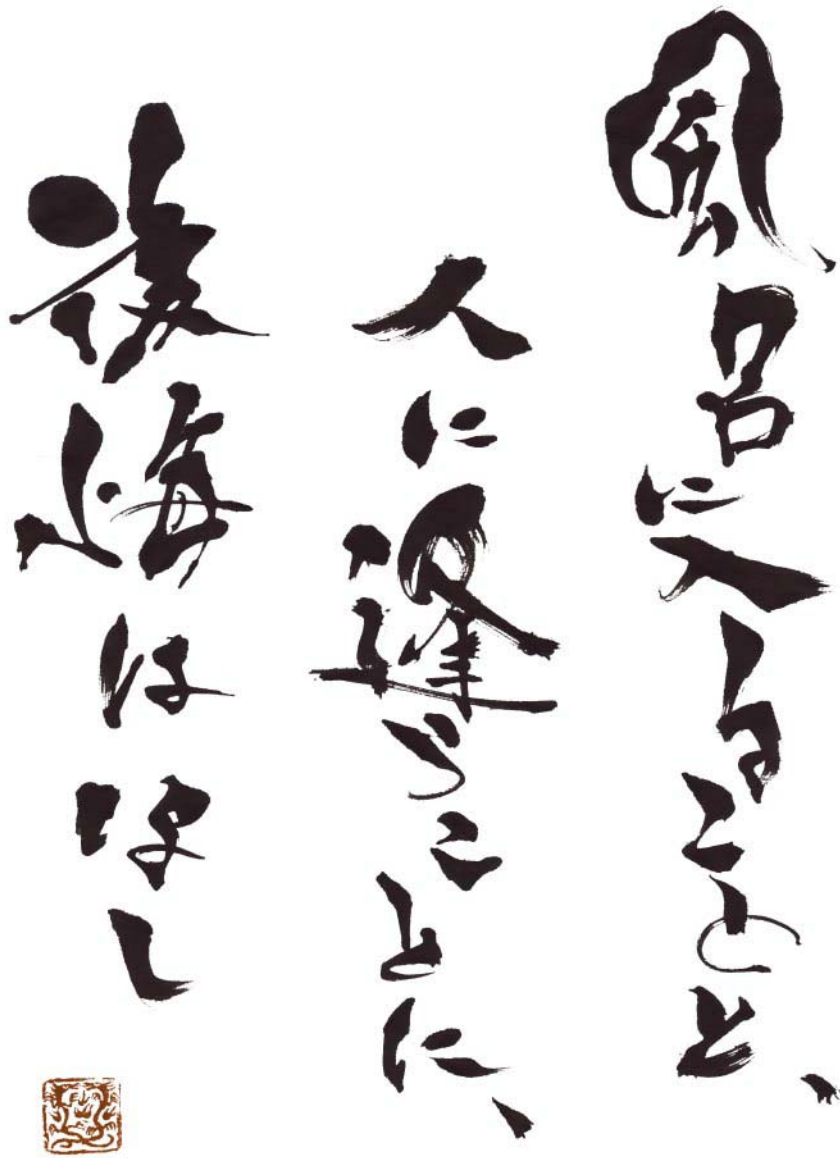 風呂に入ることと、
人に逢うことに、
後悔はなし